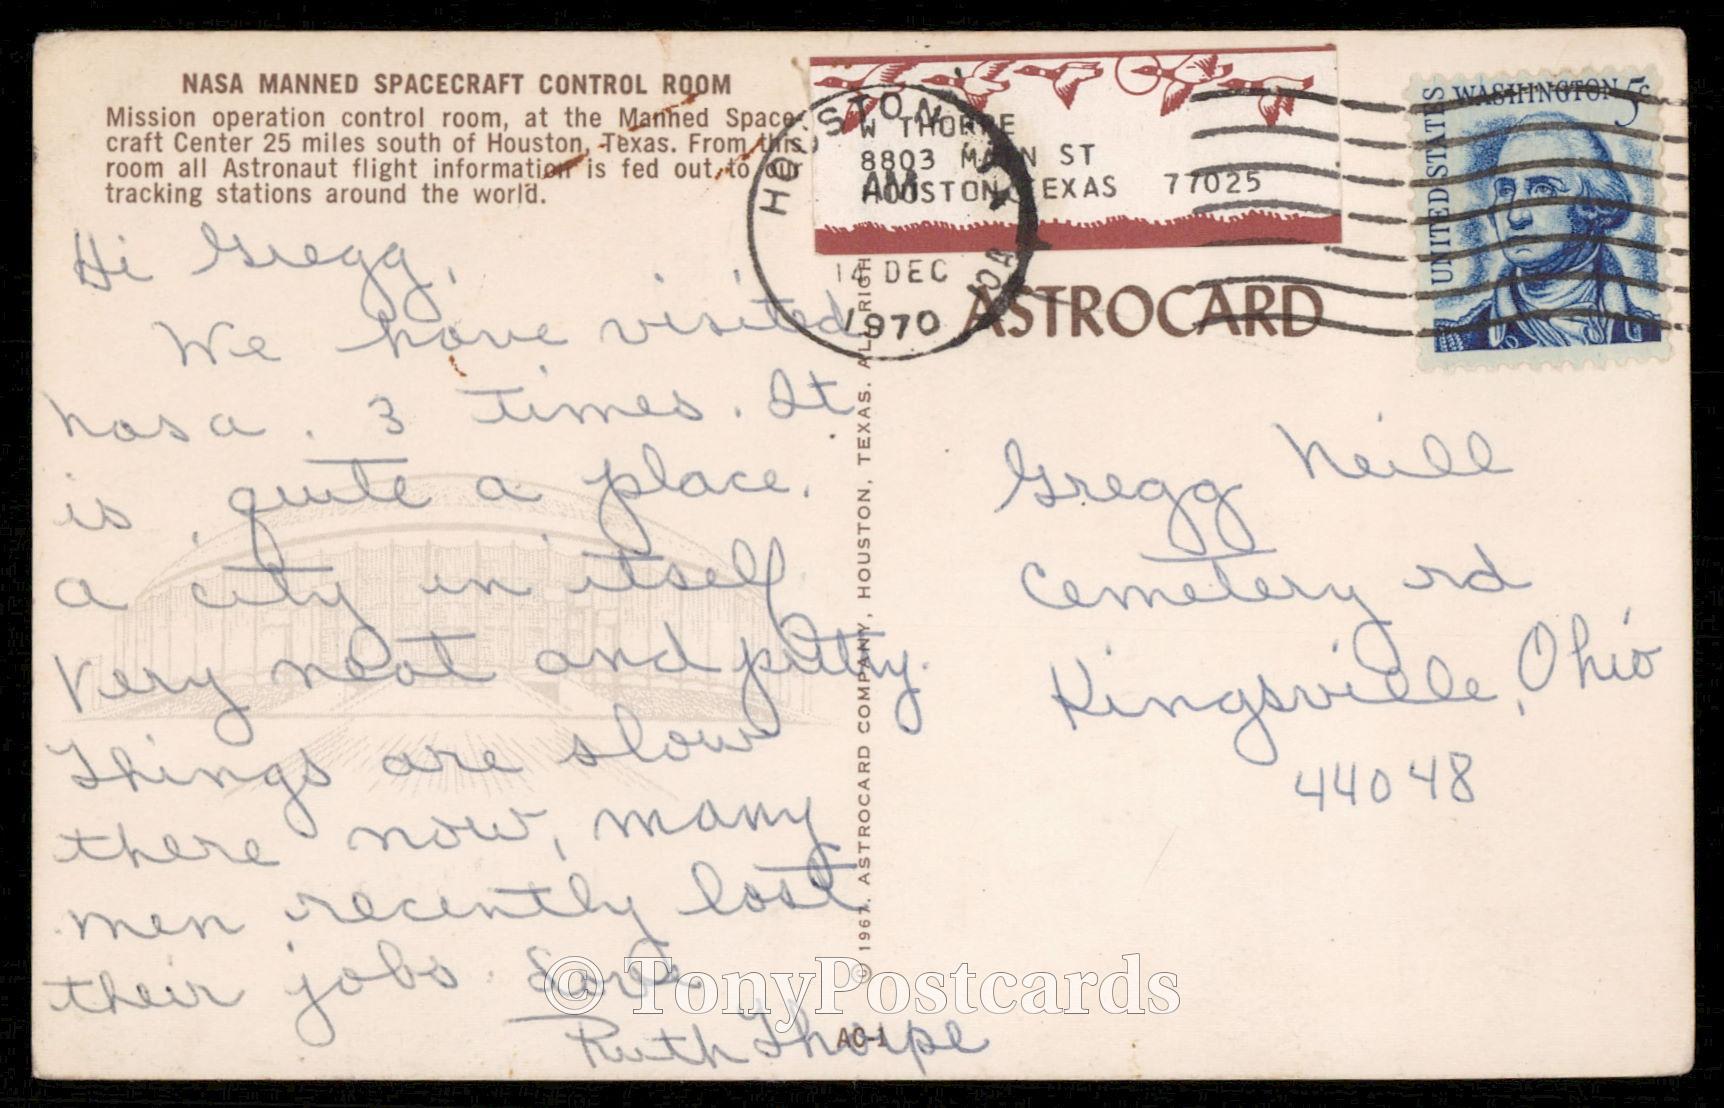 NASA MANNED SPACECRAFT CONTROL ROOM
Mission operation control room, at the Manned Space-
craft Center 25 miles south of Houston, Texas. From this
room all Astronaut flight information is fed out to our
tracking stations around the world.
Hi Gregg,
We have visited
nasa. 3 times. It
is quite a place.
a city in itself
Very neat and pretty.
Things are slow
there now, many
men recently lost
their jobs. Love
Ruth Thorpe
W THORPE
8803 MAIN ST
HOUSTON TEXAS 77025
HOUSTON, TX
AM
14 DEC
1970
ASTROCARD
UNITED STATES
WASHINGTON 5c
© 1967. ASTROCARD COMPANY, HOUSTON, TEXAS. ALL RIGH
Gregg Neill
Cemetery rd
Kingsville, Ohio
44048
AC-1
© TonyPostcards